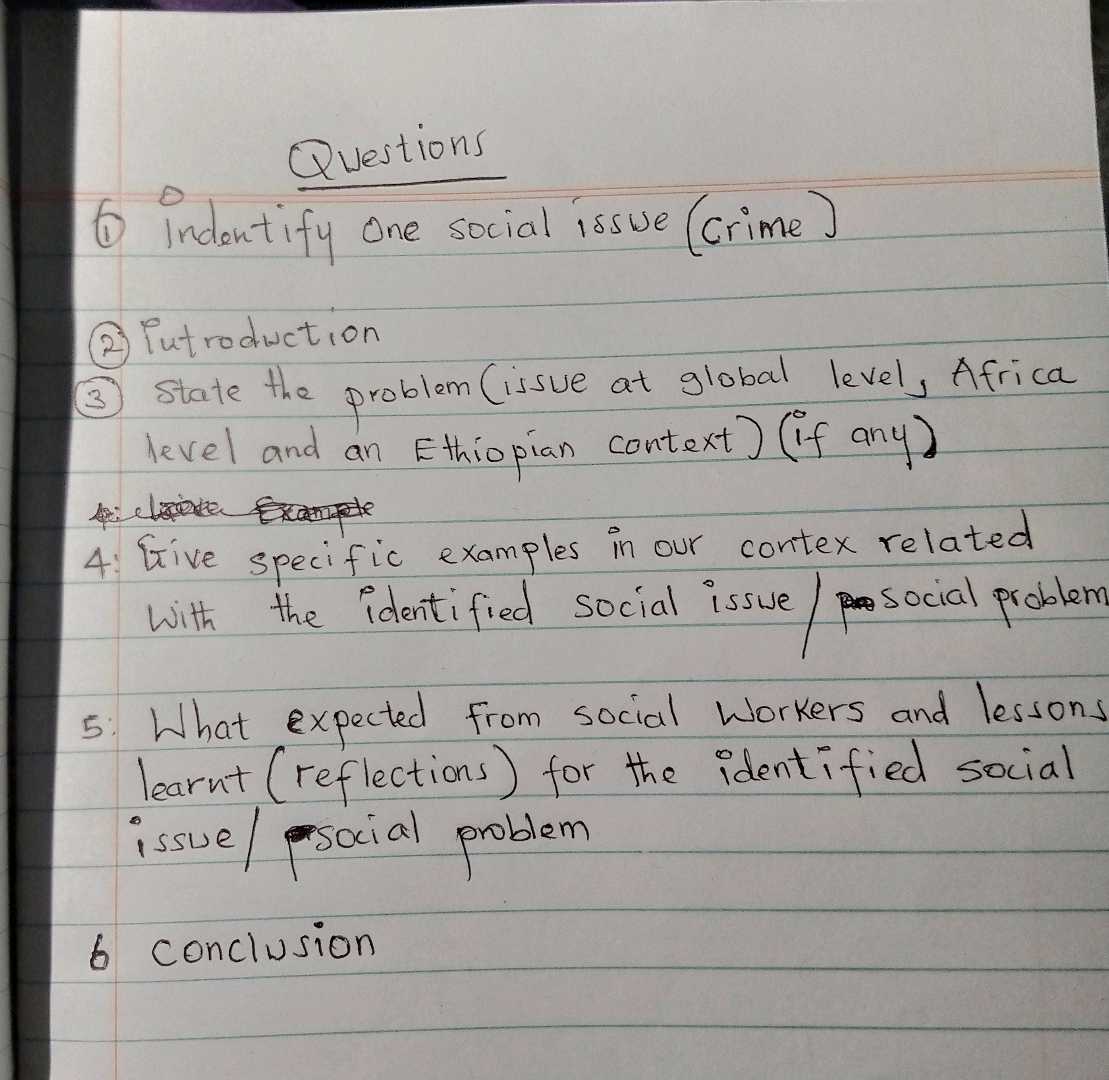 Questions
① indentify one social issue (crime)
② Introduction
③ State the problem (issue at global level, Africa
level and an Ethiopian context) (if any)
4: Give specific examples in our contex related
with the identified social issue / social problem
5: What expected from social workers and lessons
learnt (reflections) for the identified social
issue / social problem
6 conclusion